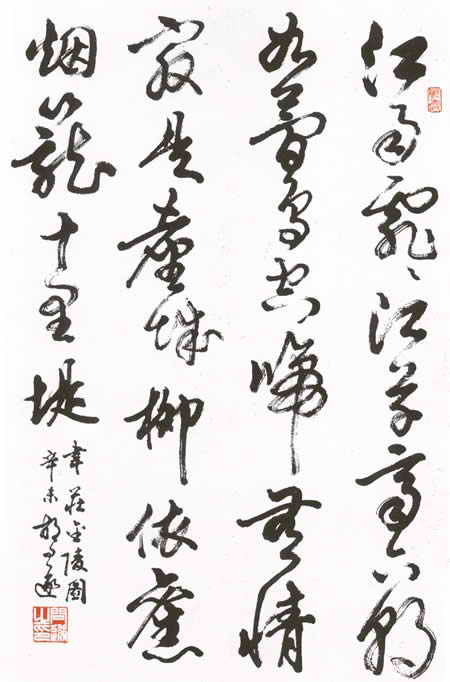 江雨霏〻江草齊六朝
如夢鳥空啼無情
最是臺城柳依舊
烟籠十里堤
韋莊金陵圖
辛未胡问遂